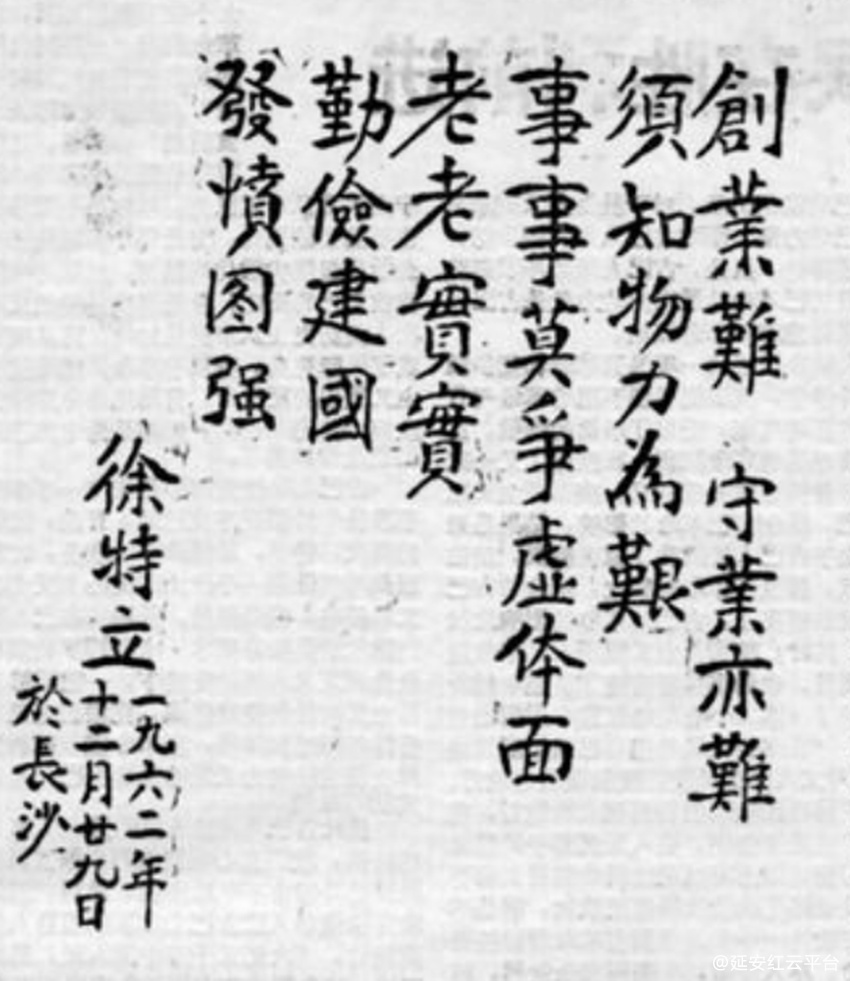 創業難 守業亦難
須知物力為艱
事事莫爭虛体面
老老實實
勤儉建國
發憤图强
徐特立
一九六二年
十二月廿九日
於長沙
@延安红云平台